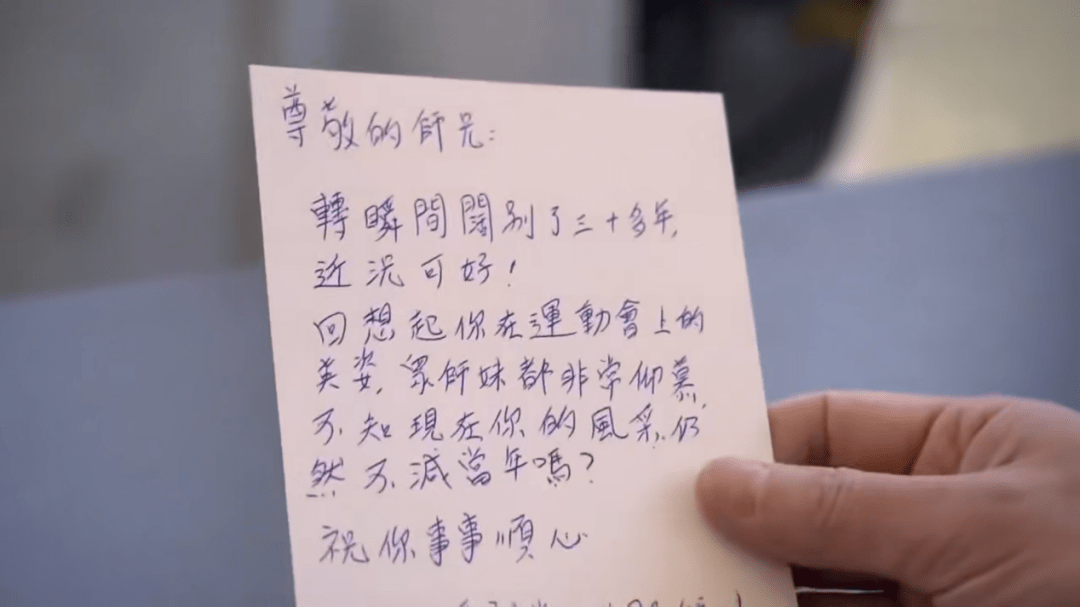 尊敬的師兄:
轉瞬間闊別了三十多年,
近況可好!
回想起你在運動會上的
美姿,眾師妹都非常仰慕,
不知現在你的風采仍
然不減當年嗎?
祝你事事順心